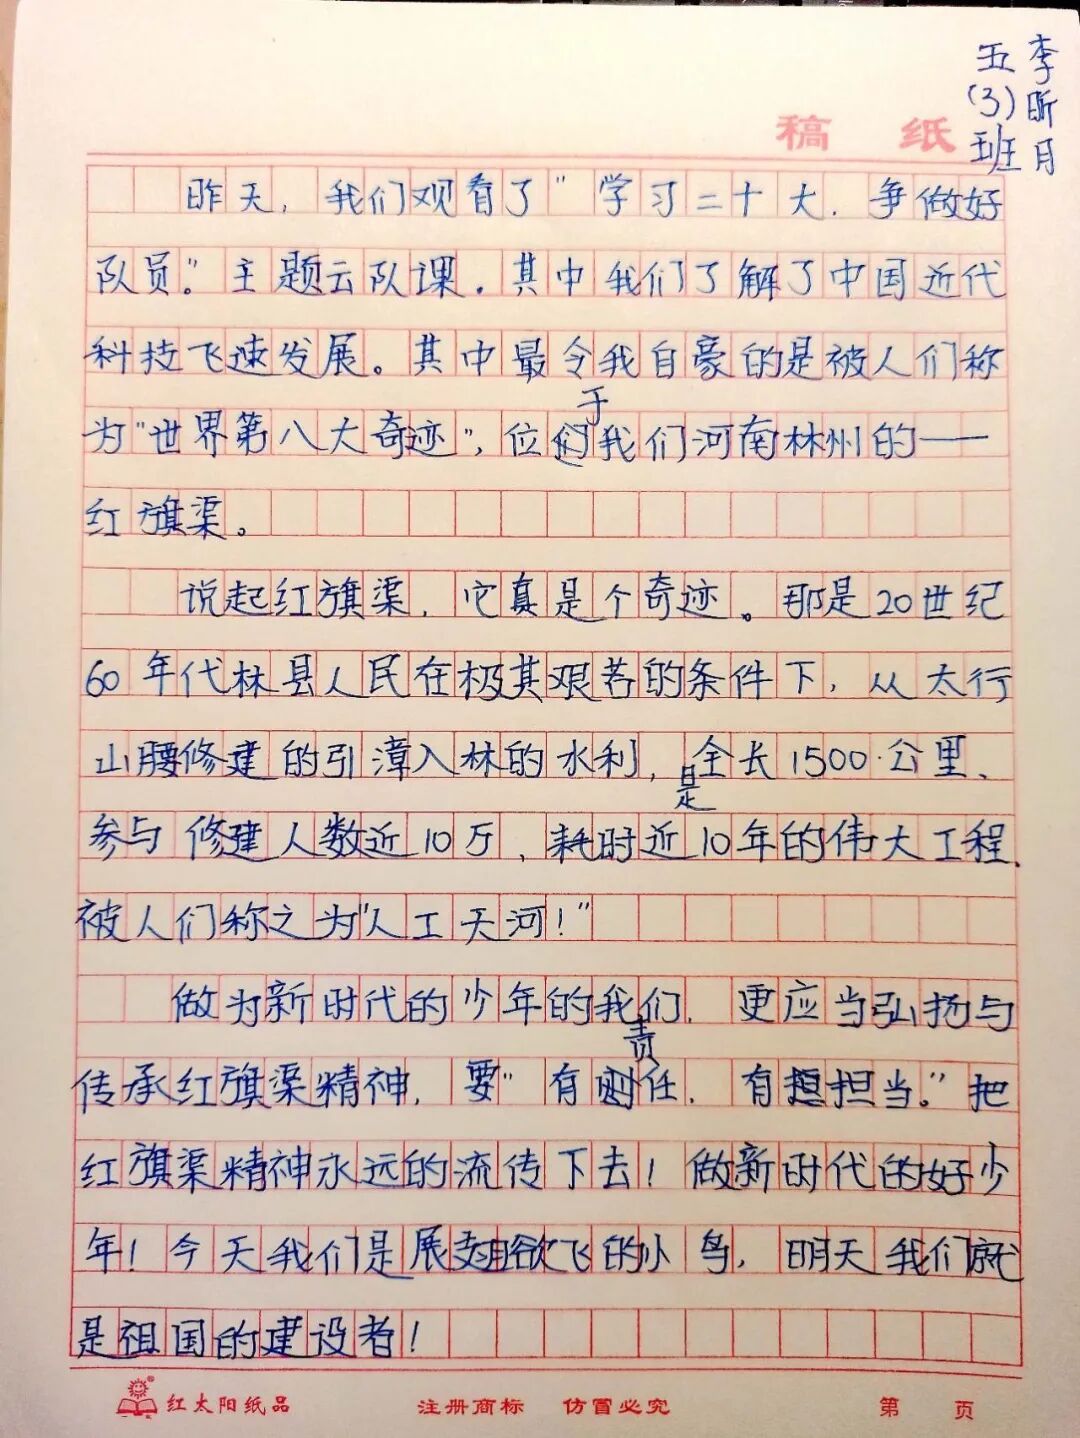 李昕月
五(3)班
稿 纸
昨天，我们观看了"学习二十大，争做好
队员。"主题云队课。其中我们了解了中国近代
科技飞速发展。其中最令我自豪的是被人们称
为"世界第八大奇迹"，位于我们河南林州的——
红旗渠。
说起红旗渠，它真是个奇迹。那是20世纪
60年代林县人民在极其艰苦的条件下，从太行
山腰修建的引漳入林的水利，是全长1500公里、
参与修建人数近10万、耗时近10年的伟大工程，
被人们称之为"人工天河！"
做为新时代的少年的我们，更应当弘扬与
传承红旗渠精神，要"有责任，有担当。"把
红旗渠精神永远的流传下去！做新时代的好少
年！今天我们是展翅欲飞的小鸟，明天我们就
是祖国的建设者！
红太阳纸品 注册商标 仿冒必究 第 页